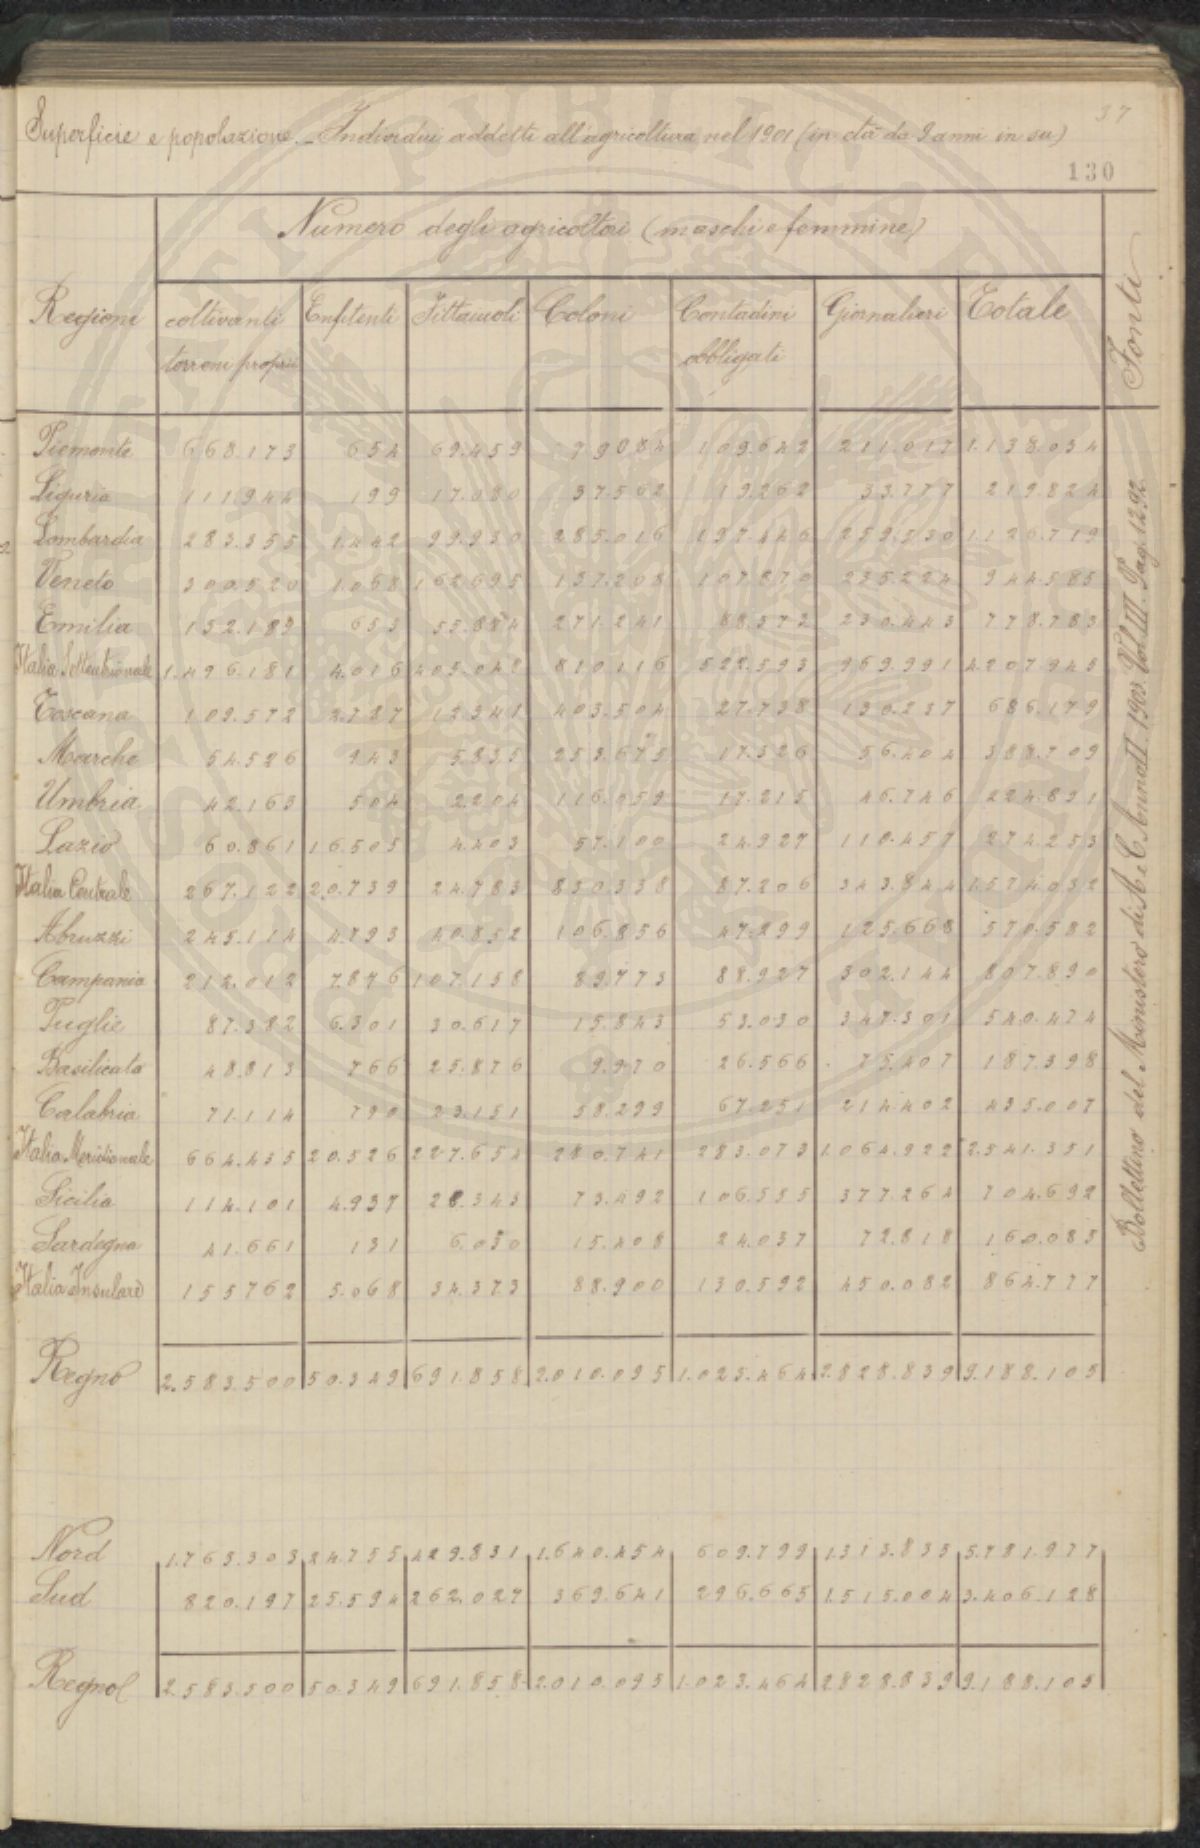 37
Superficie e popolazione. _ Individui addetti all'agricoltura nel 1901 (in età da 9 anni in su)
130
Numero degli agricoltori (maschi e femmine)
Regioni coltivanti terreni proprii Enfiteuti Fittaiuoli Coloni Contadini obbligati Giornalieri Totale Fonti
Piemonte 668.173 654 69.459 79084 109.642 211.017 1.138.034
Liguria 111.944 199 17.080 37.562 19.262 33.777 219.824
Lombardia 283.355 1.442 99.930 285.016 197.446 259.530 1.126.719
Veneto 300.520 1.068 162.695 137.208 107.870 235.224 944.585
Emilia 152.189 653 55.884 271.241 88.373 230.443 778.783
Italia Settentrionale 1.496.181 4.016 405.048 810.116 522.593 969.991 4.207.945
Toscana 109.572 2.727 12.341 403.504 27.738 136.237 686.179
Marche 54.526 943 5.835 253.675 17.326 56.404 388.709
Umbria 42.163 504 2.204 116.059 17.215 46.746 224.891
Lazio 60.861 16.505 4.403 57.100 24.927 110.457 274.253
Italia Centrale 267.122 20.739 24.783 830338 87.206 343.844 1.574.032
Abruzzi 245.114 4.793 40.852 106.856 47.299 125.668 570.582
Campania 212.012 7.876 107.158 89.773 88.927 302.144 807.890
Puglie 87.382 6.301 30.617 15.843 53.030 347.301 540.474
Basilicata 48.813 766 25.876 9.970 26.566 75.407 187.398
Calabria 71.114 790 23.151 58.299 67.251 214.402 435.007
Italia Meridionale 664.435 20.526 227.654 280.741 283.073 1.064.922 2.541.351
Sicilia 114.101 4.937 28.343 73.492 106.555 377.264 704.692
Sardegna 41.661 131 6.030 15.408 24.037 72.818 160.085
Italia Insulare 155762 5.068 34.373 88.900 130.592 450.082 864.777
Regno 2.583.500 50.349 691.858 2.010.095 1.023.464 2.828.839 9.188.105
Nord 1.763.303 24.755 429.831 1.640.454 609.799 1.313.835 5.781.977
Sud 820.197 25.594 262.027 369.641 296.665 1.515.004 3.406.128
Regno 2.583.500 50.349 691.858 2.010.095 1.023.464 2.828.839 9.188.105
Bollettino del Ministero di A e C. Anno II. 1903. Vol. III. Pag. 1292.